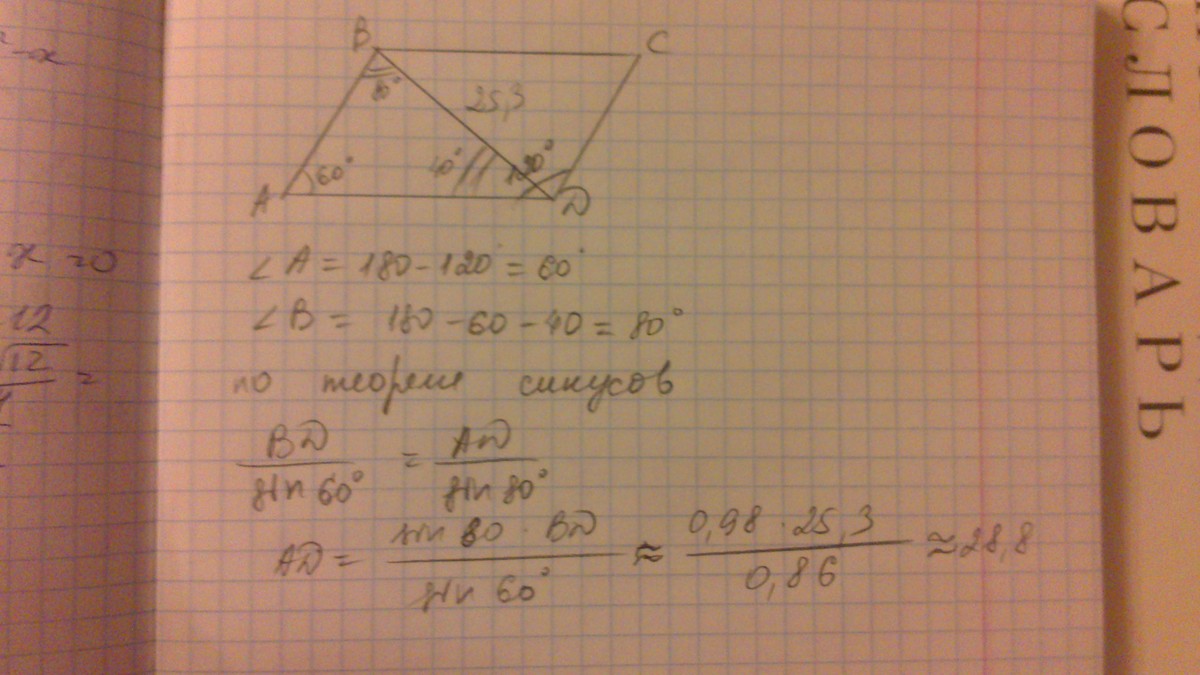 B
C
80°
25,3
60°
40°
120°
A
D
∠A = 180 - 120° = 60°
∠B = 180 - 60 - 40 = 80°
по теореме синусов
BD / sin 60° = AD / sin 80°
AD = sin 80 · BD / sin 60° ≈ 0,98 · 25,3 / 0,86 ≈ 28,8
x = 0
12
√12
=
СЛОВАРЬ